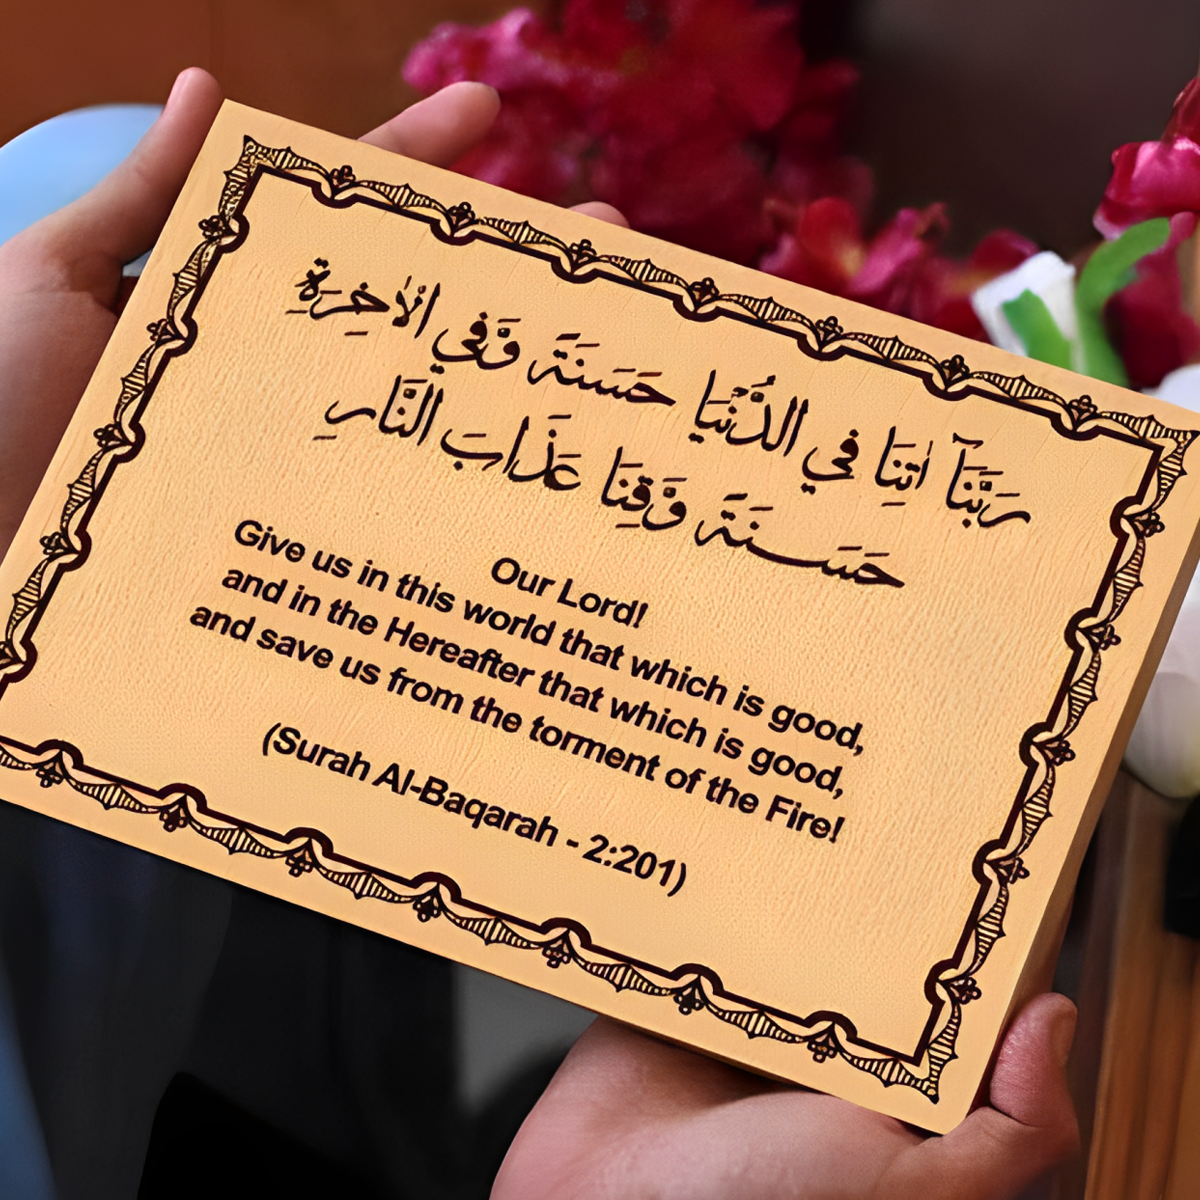 رَبَّنَآ اٰتِنَا فِي الدُّنْيَا حَسَنَةً وَّفِي الْاٰخِرَةِ
حَسَنَةً وَّقِنَا عَذَابَ النَّارِ
Our Lord!
Give us in this world that which is good,
and in the Hereafter that which is good,
and save us from the torment of the Fire!
(Surah Al-Baqarah - 2:201)